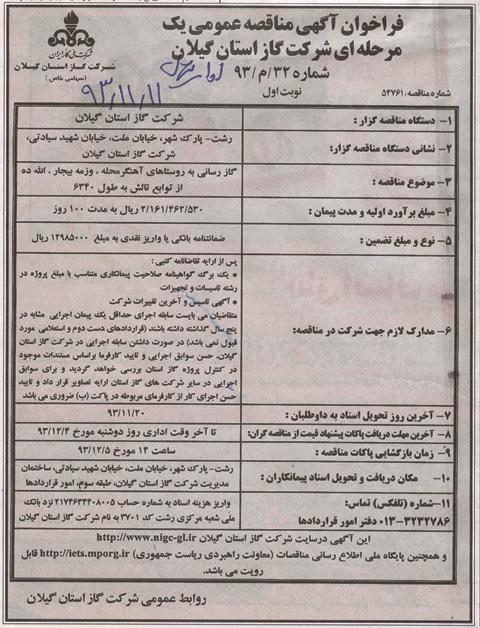 فراخوان آگهی مناقصه عمومی یک
مرحله ای شرکت گاز استان گیلان
شماره ۳۲/م/۹۳
نوبت اول
شرکت ملی گاز ایران
شرکت گاز استان گیلان
(سهامی خاص)
۹۳,۱۱,۱۱
شماره مناقصه: ۵۴۷۶۱
۱- دستگاه مناقصه گزار :
شرکت گاز استان گیلان
۲- نشانی دستگاه مناقصه گزار:
رشت- پارک شهر، خیابان ملت، خیابان شهید سیادتی،
شرکت گاز استان گیلان
۳- موضوع مناقصه :
گاز رسانی به روستاهای آهنگرمحله ، وزمه بیجار ، الله ده
از توابع تالش به طول ۶۳۴۰
۴- مبلغ برآورد اولیه و مدت پیمان :
۲/۱۶۱/۴۶۲/۵۳۰ ریال به مدت ۱۰۰ روز
۵- نوع و مبلغ تضمین :
ضمانتنامه بانکی یا واریز نقدی به مبلغ ۱۲۹۸۵۰۰۰۰ ریال
۶- مدارک لازم جهت شرکت در مناقصه:
پس از ارایه تقاضانامه کتبی :
* یک برگ گواهینامه صلاحیت پیمانکاری متناسب با مبلغ پروژه در
رشته تاسیسات و تجهیزات
* آگهی تاسیس و آخرین تغییرات شرکت
متقاضیان می بایست سابقه اجرای حداقل یک پیمان اجرایی مشابه در
پنج سال گذشته داشته باشند (قراردادهای دست دوم و استعلامی مورد
قبول نمی باشد) در صورت داشتن سابقه اجرایی در شرکت گاز استان
گیلان، حسن سوابق اجرایی و تایید کارفرما براساس مستندات موجود
در کنترل پروژه گاز استان بررسی خواهد گردید و برای سوابق
اجرایی در سایر شرکت های گاز استان ارایه تصاویر قرار داد و تایید
حسن اجرای کار از کارفرمای مربوطه در پاکت (ب) ضروری می باشد
۷- آخرین روز تحویل اسناد به داوطلبان :
۹۳/۱۱/۲۰
۸- آخرین مهلت دریافت پاکات پیشنهاد قیمت از مناقصه گران:
تا آخر وقت اداری روز دوشنبه مورخ ۹۳/۱۲/۴
۹- زمان بازگشایی پاکات مناقصه :
ساعت ۱۴ مورخ ۹۳/۱۲/۵
۱۰- مکان دریافت و تحویل اسناد پیمانکاران :
رشت- پارک شهر، خیابان ملت، خیابان شهید سیادتی، ساختمان
مدیریت شرکت گاز استان گیلان، طبقه سوم، امور قراردادها
۱۱- شماره (تلفکس) تماس:
۰۱۳-۳۲۳۲۷۸۶ دفتر امور قراردادها
واریز هزینه اسناد به شماره حساب ۲۱۷۴۶۳۴۴۰۸۰۰۵ نزد بانک
ملی شعبه مرکزی رشت کد ۳۷۰۱ به نام شرکت گاز استان گیلان
این آگهی در سایت شرکت گاز استان گیلان http://www.nigc-gl.ir
و همچنین پایگاه ملی اطلاع رسانی مناقصات (معاونت راهبردی ریاست جمهوری) http://iets.mporg.ir قابل
رویت می باشد.
روابط عمومی شرکت گاز استان گیلان